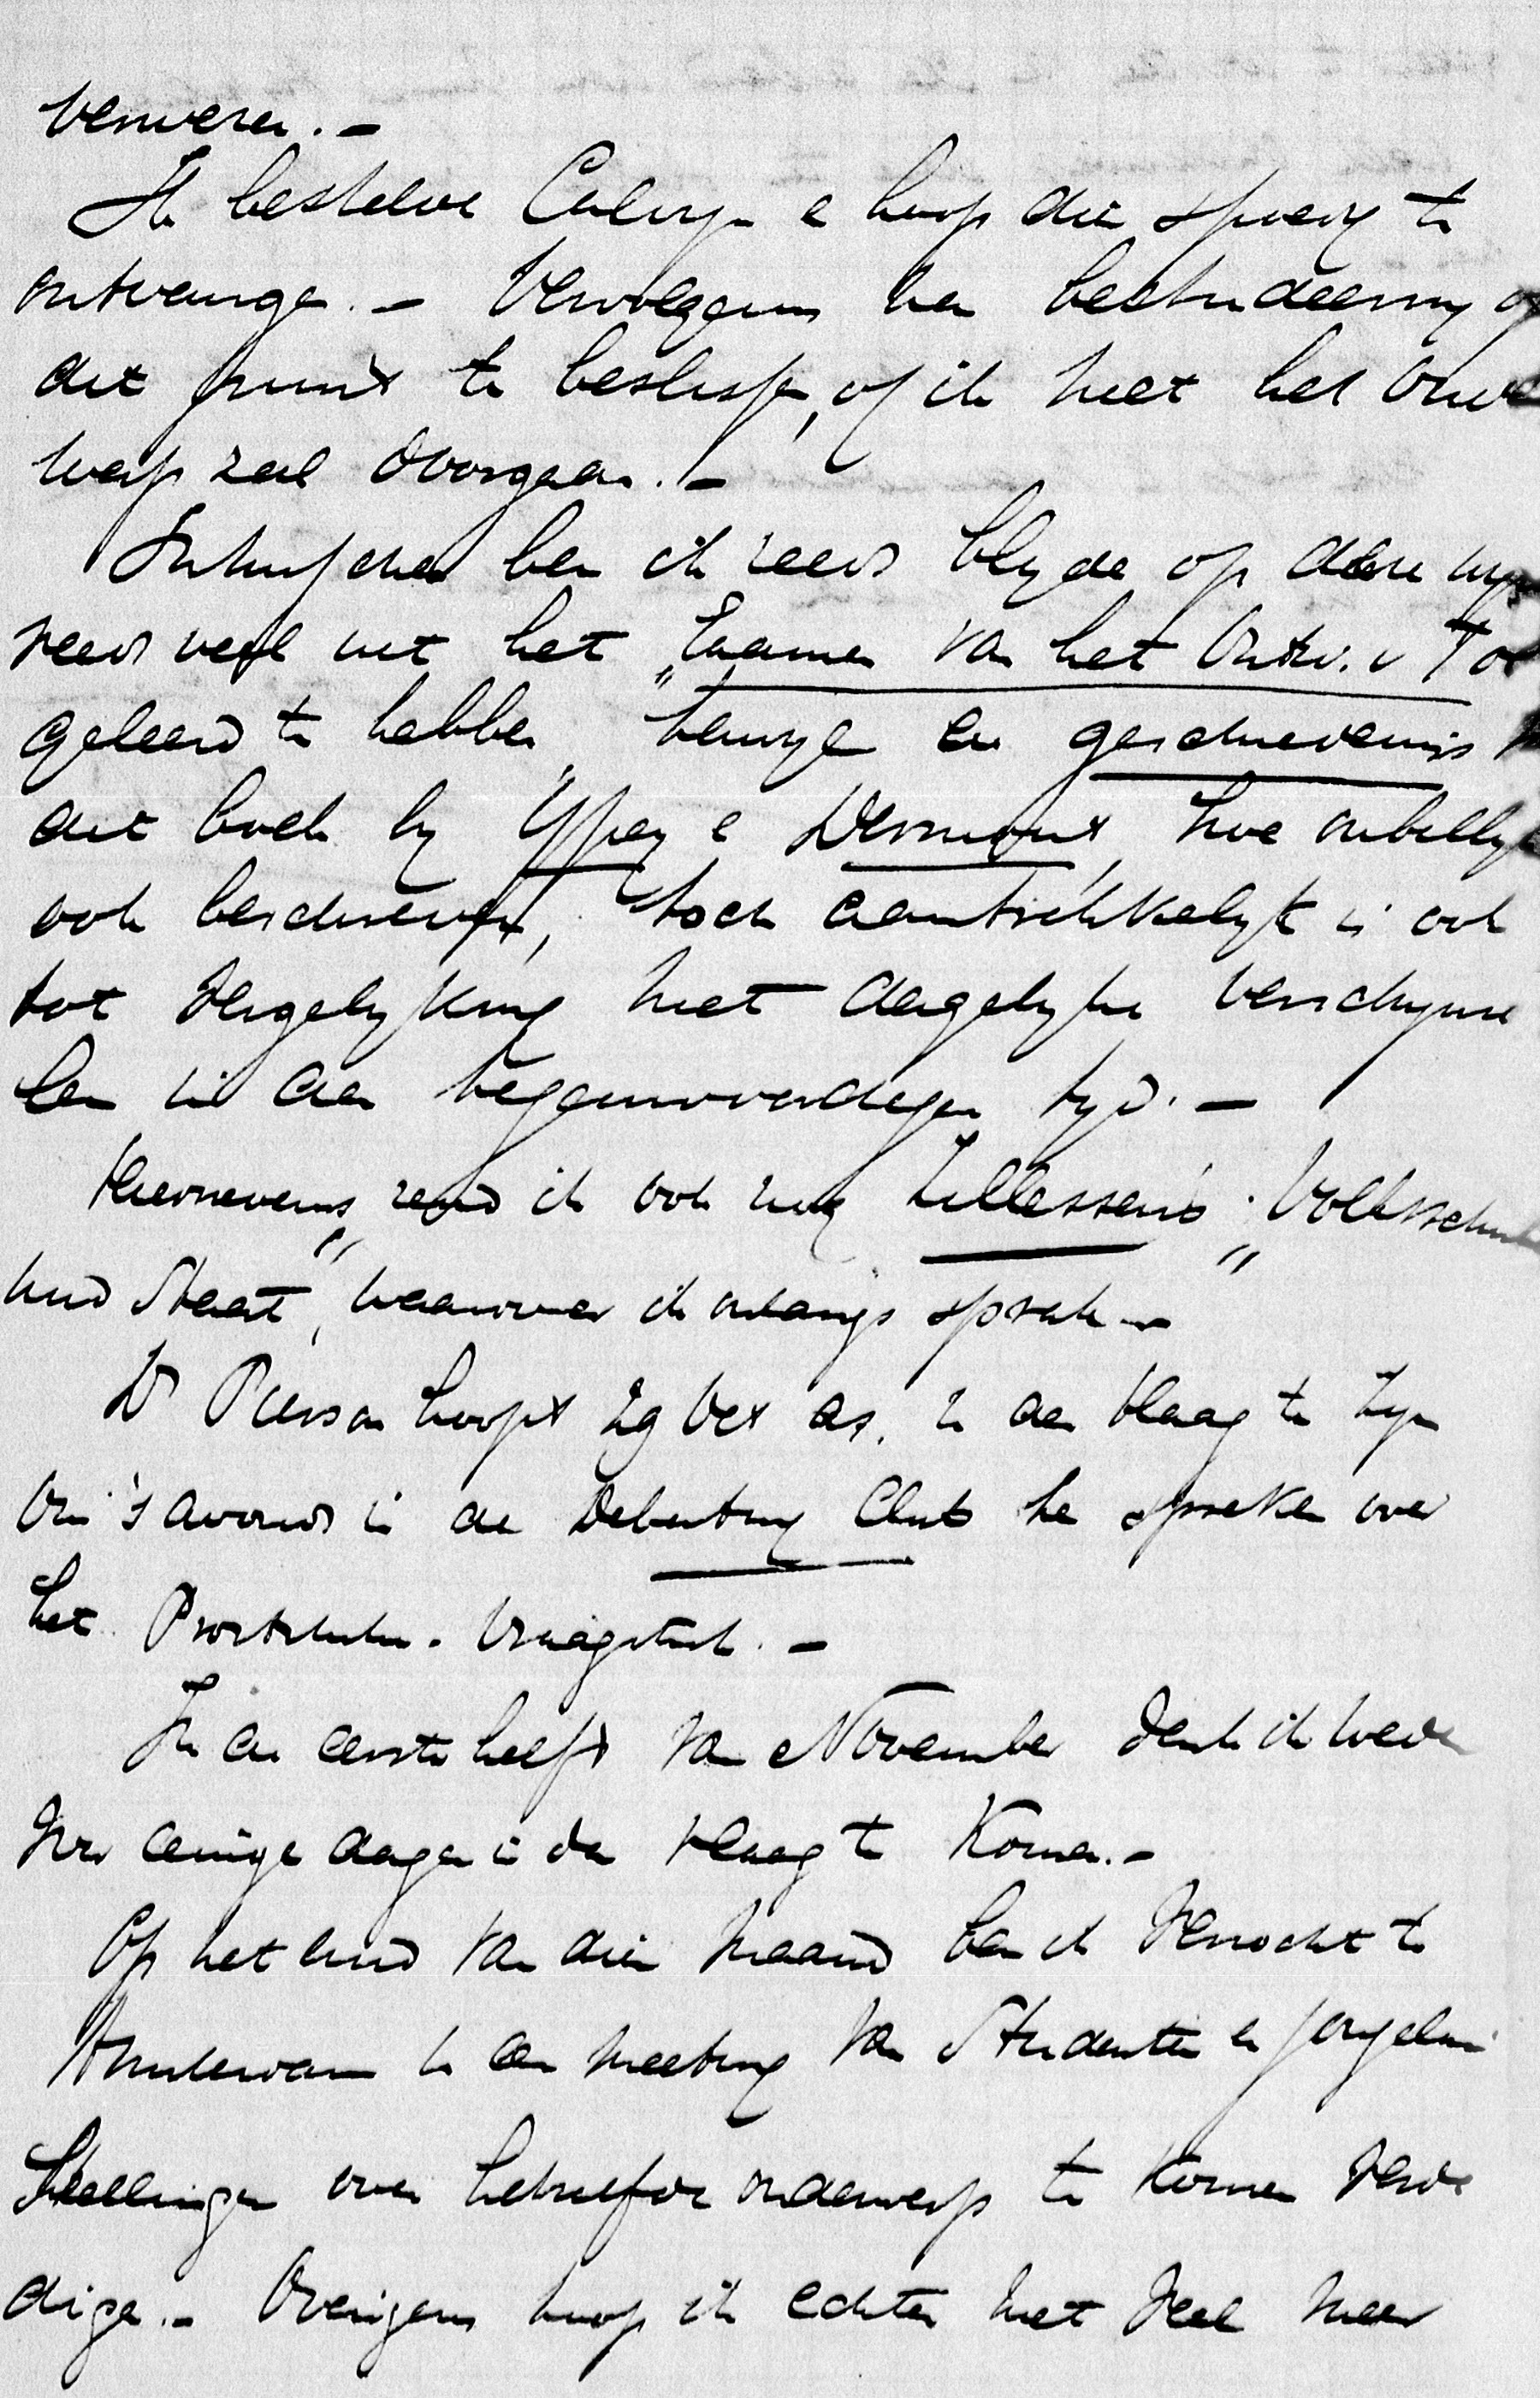 verweren. —
Ik bestelde Calvijn e hoop die spoedig te
ontvange. — Vervolgens na bestudeering o
dit punt te beslisse, of ik met het Onde
werp zal doorgaan. —
Intusschen ben ik reeds blyde op deze wijs
reeds veel uit het „Examen van het Ontw. v Tol
geleerd te hebben, terwijl en geschiedenis v
dit boek by Ypey e Dermout, hoe onbillyk
ook beschreven, toch aantrekkelyk is ook
tot vergelyking met dergelyke verschynse
len in den tegenwoordigen tyd. —
Hiernevens zend ik ook nog Zillessen's „Volksschule
und Staat", waarover ik onlangs sprak —
Dr Pierson hoopt 29 Oct as. in den Haag te zyn
Om 's avonds in de Debating Club te spreken over
het Prostitutie-Vraagstuk. —
In de eerste helft van November denk ik weder
voor eenige dagen in den Haag te Komen. —
Op het eind van die maand ben ik verzocht te
Amsterdam in een meeting van Studenten en jongelui
Stellingen over hetzelfde onderwerp te komen verde
digen. — Overigens hoop ik echter niet veel meer